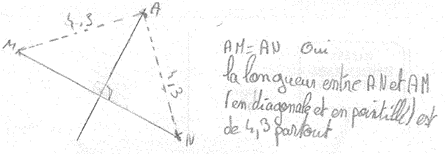 4,3
A
M
4,3
N
AM = AN Oui
la longueur entre AN et AM
(en diagonale et en pointillé) est
de 4,3 partout